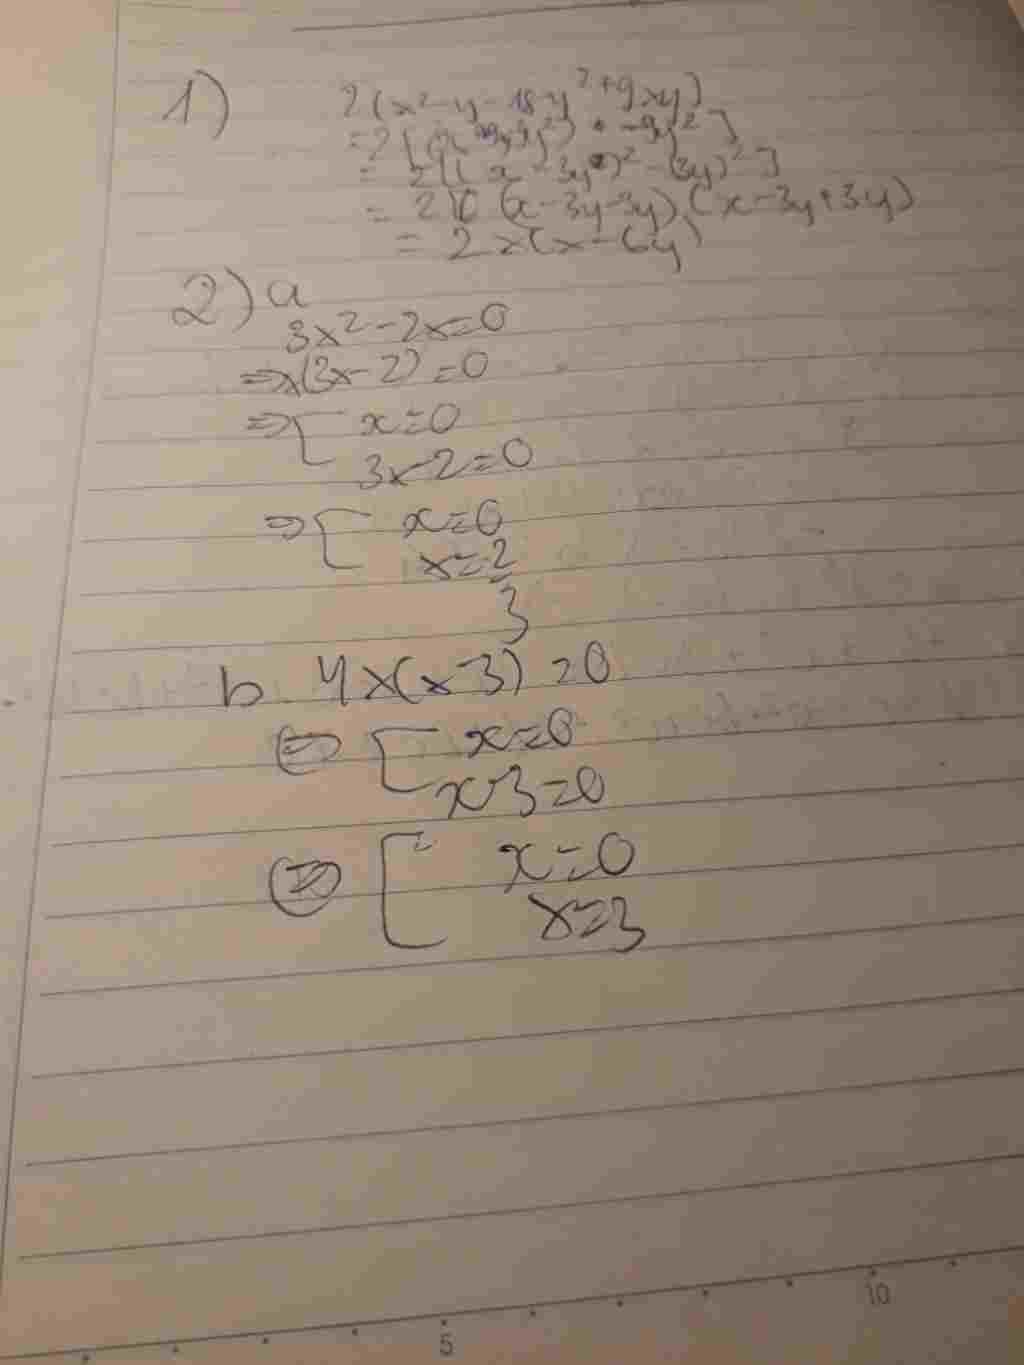 1)
2(x²-y-18y²+9xy)
=2[
= 2[(x-3y)²-(3y)²]
= 2 (x-3y-3y).(x-3y+3y)
= 2x(x-6y)
2) a
3x²-2x=0
⇒x(3x-2)=0
⇒[ x=0
3x-2=0
⇒[ x=0
x=2
3
b 4x(x-3)=0
⇔[ x=0
x-3=0
⇔[ x=0
x=3
5
10